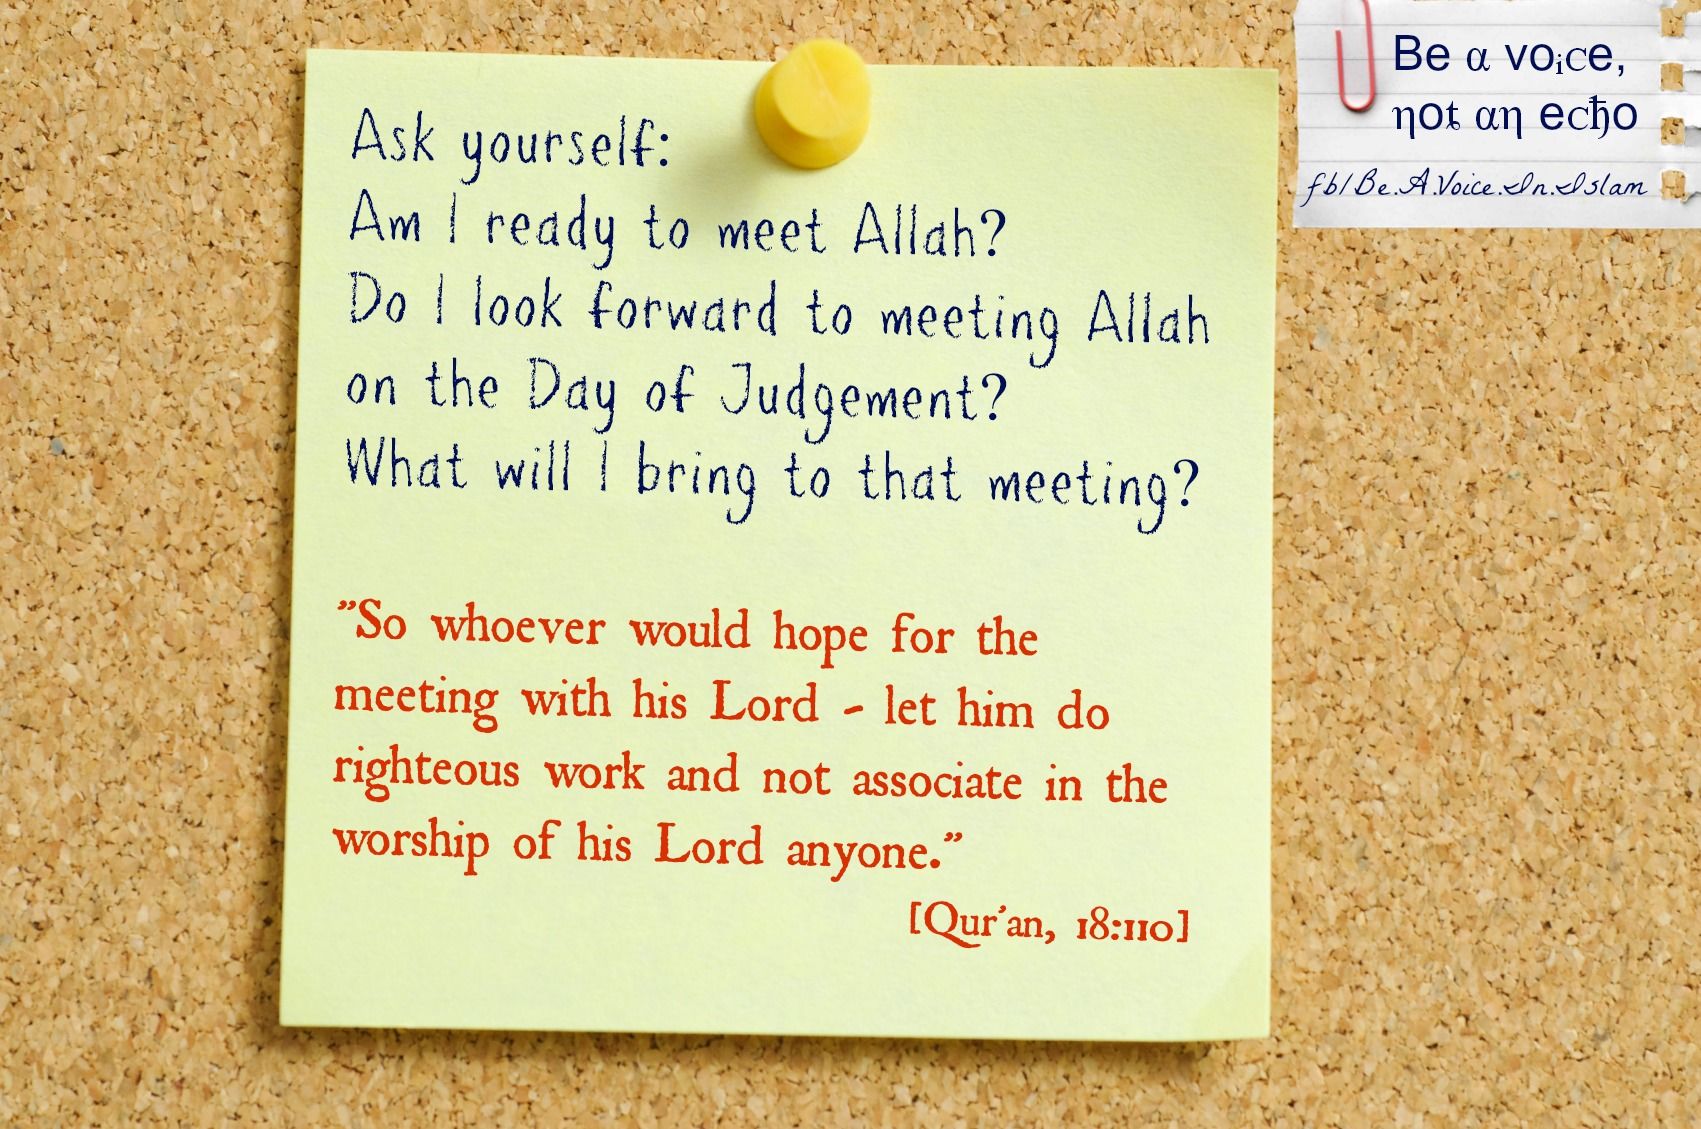 Ask yourself:
Am I ready to meet Allah?
Do I look forward to meeting Allah
on the Day of Judgement?
What will I bring to that meeting?
”So whoever would hope for the
meeting with his Lord - let him do
righteous work and not associate in the
worship of his Lord anyone.”
[Qur'an, 18:110]
Be α voice,
ηoŧ αη ecђo
fb/Be.A.Voice.In.Islam